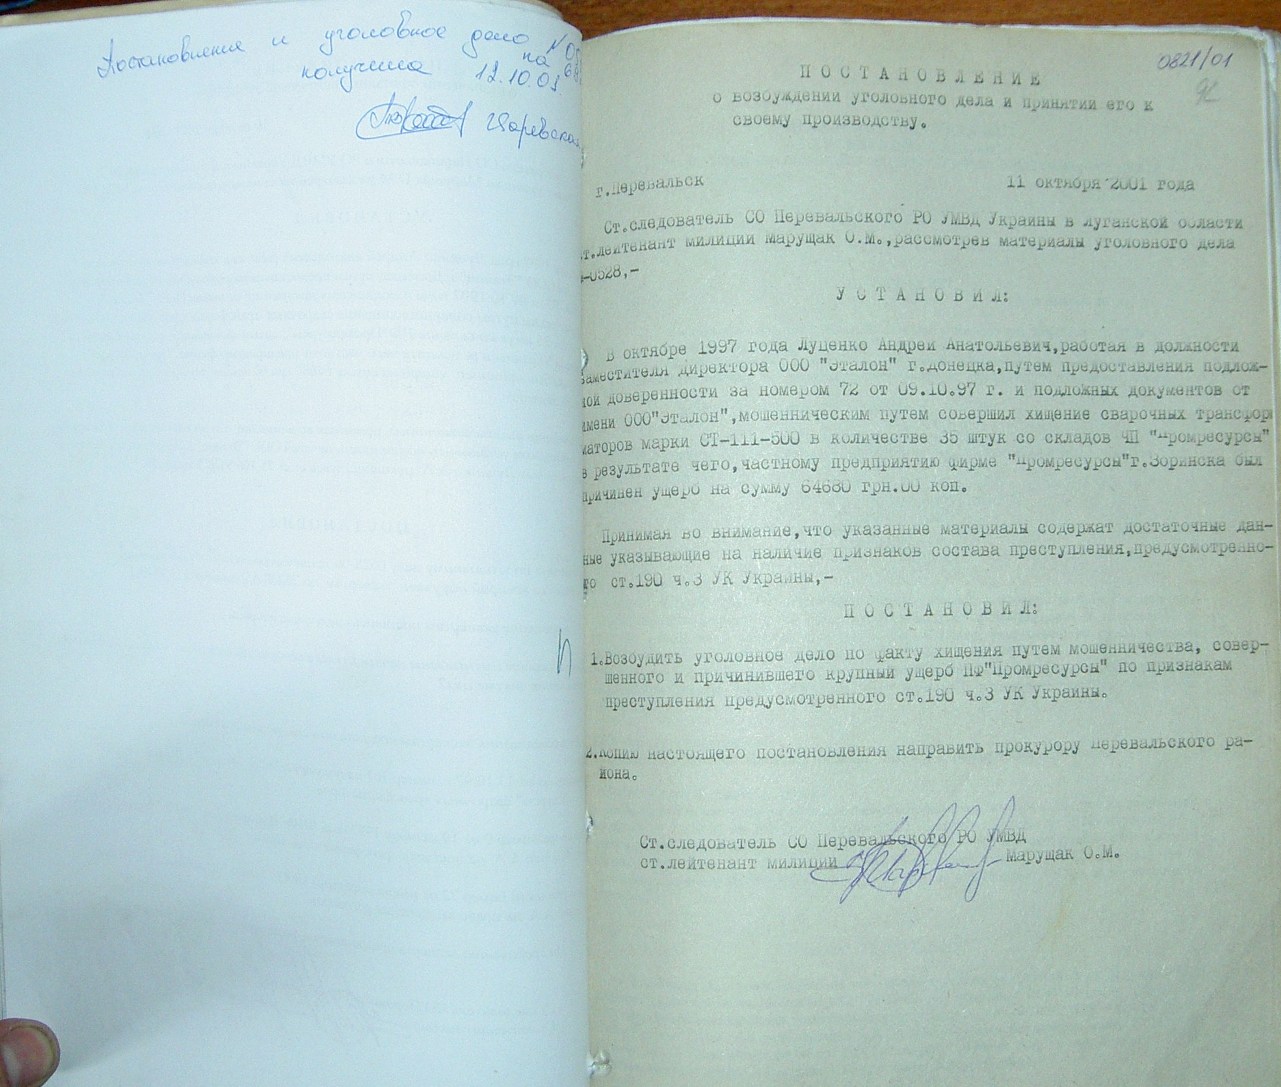 Постановление и уголовное дело №
на
получена 12.10.01.
Царевская
0821/01
92
П О С Т А Н О В Л Е Н И Е
о возбуждении уголовного дела и принятии его к
своему производству.
г.Перевальск 11 октября 2001 года
Ст.следователь СО Перевальского РО УМВД Украины в Луганской области
ст.лейтенант милиции Марущак О.М.,рассмотрев материалы уголовного дела
-0528,-
У С Т А Н О В И Л:
В октябре 1997 года Луценко Андрей Анатольевич,работая в должности
заместителя директора ООО "Эталон" г.Донецка,путем предоставления подлож-
ной доверенности за номером 72 от 09.10.97 г. и подложных документов от
имени ООО"Эталон",мошенническим путем совершил хищение сварочных трансфор
маторов марки СТ-111-500 в количестве 35 штук со складов ЧП "Промресурсы"
в результате чего,частному предприятию фирме "Промресурсы"г.Зоринска был
причинен ущерб на сумму 64680 грн.00 коп.
Принимая во внимание,что указанные материалы содержат достаточные дан-
ные указывающие на наличие признаков состава преступления,предусмотренно-
го ст.190 ч.3 УК Украины,-
П О С Т А Н О В И Л:
1.Возбудить уголовное дело по факту хищения путем мошенничества, совер-
шенного и причинившего крупный ущерб ПФ"Промресурсы" по признакам
преступления предусмотренного ст.190 ч.3 УК Украины.
2.Копию настоящего постановления направить прокурору Перевальского ра-
йона.
Ст.следователь СО Перевальского РО УМВД
ст.лейтенант милиции Марущак О.М.